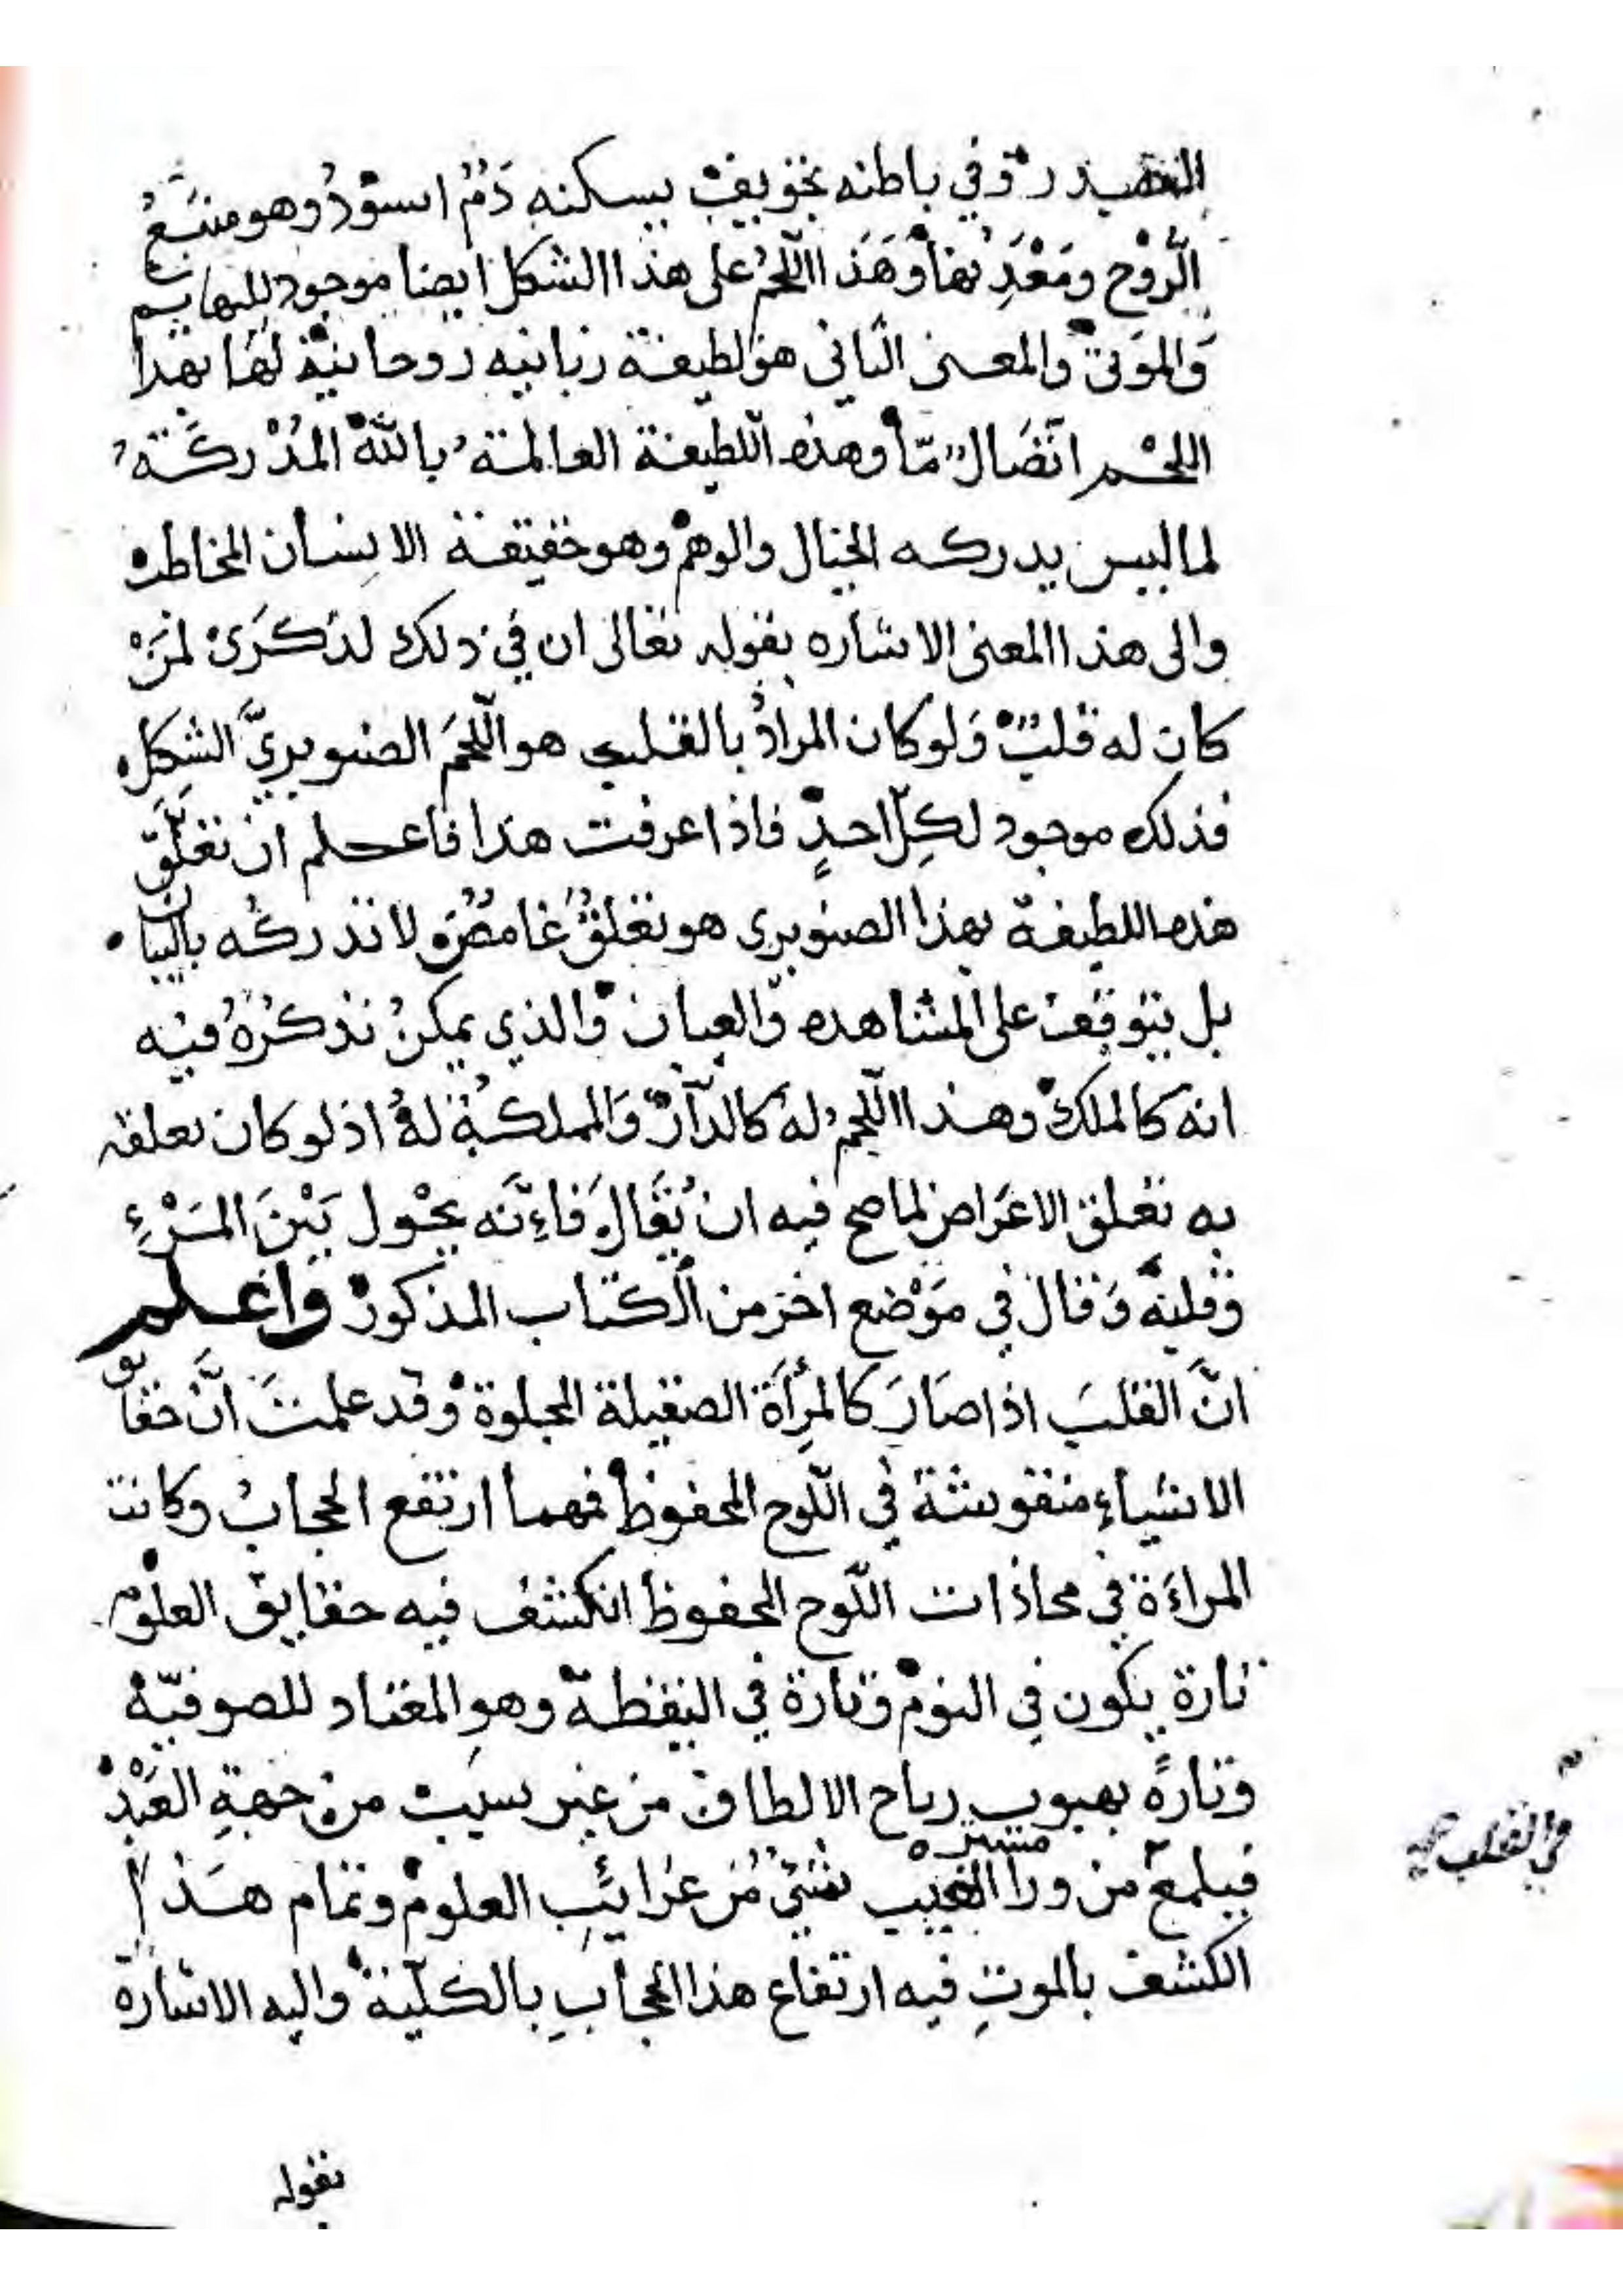 الصدر وفي باطنه تجويف يسكنه دَمٌ اسودُ وهو منبَعُ
الرّوْح ومَعْدِنها وَهَذا اللّحمُ على هذا الشكل ايضا موجود للبهايم
وَالموَتى والمعنى الثاني هوَ لطيفة ربانيه روحانيّة لهَا بهذا
اللحْم اتّصَالٌ مّا وهذه اللّطيفة العالمة بالله المُدْركَة
لما ليس يدركه الخيال والوهم وهو حقيقة الانسان المخاطب
والى هذا المعنى الاشاره بقوله تعالى ان في ذلك لذكرَى لمَنْ
كان له قلبٌ وَلو كان المرادُ بالقلب هو اللّحمَ الصنوبريَّ الشكلِ
فذلك موجود لكِلّ احدٍ فاذا عرفت هذا فاعلم انّ تعلّقَ
هذه اللطيفة بهذا الصنوبري هو تعلقٌ غامضٌ لا تدركه بالبيان
بل يتوقف على المشاهده والعيان والذي يمكنُ تذكرُهُ فيْه
انه كالملك وهذا اللّحمُ له كالدّار وَالمملكة لهُ اذ لو كان تعلقه
به تعلق الاعَراض لما صح فيه ان يُقَالَ فاءِنّه يحْول بَيْنَ المَرْءِ
وقلبه وَقال في مَوْضع اخر من الكتاب المذكور واعلم
انَّ القلبَ اذا صَارَ كالمِرآة الصقيلة المجلوة وقد علمتَ انَّ حقايق
الاشياءِ منقوشة في اللّوح المحفوظ فمهما ارتفع الحجابُ وكانت
المراءَة في محاذات اللّوح المحفوظ انكشف فيه حقايق العلوم
تارة يكون في النوم وَتارة في اليقظة وهو المعتاد للصوفيّة
وتارةً بهبوب رياح الالطاف من غير سبب من جهةِ العَبْد
في القلب صح
ستر
فيلمع من ورا الغيب شيءٌ مُن غرايِبِ العلوم وتمام هَذا
الكشف بالموتِ فيه ارتفاع هذا الحجابِ بالكلّية واليه الاشارة
بقوله